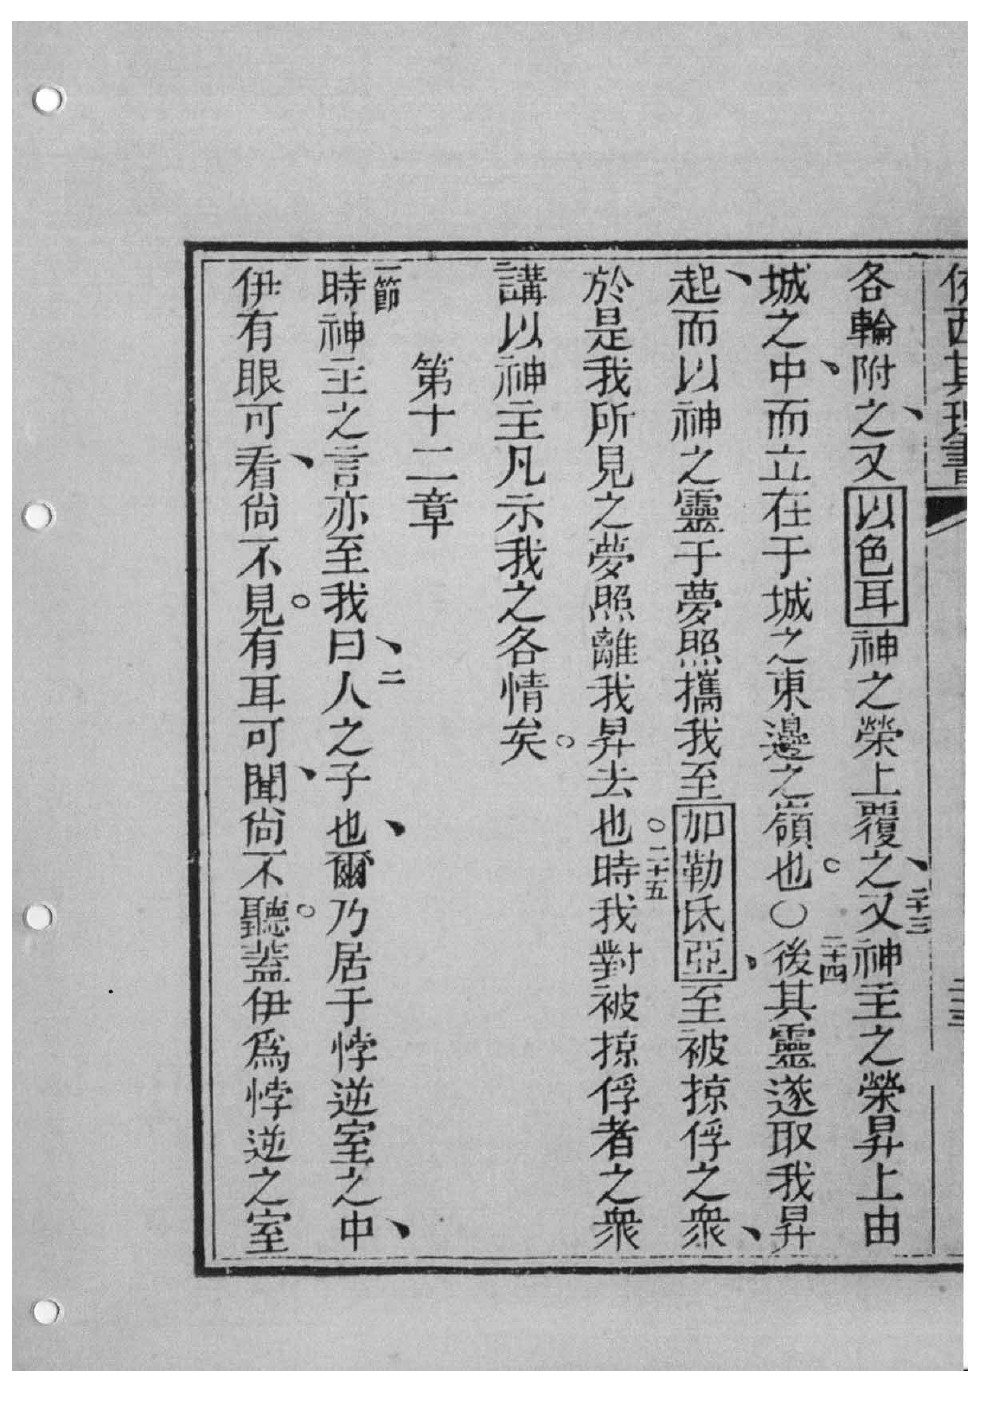 依西其理書
各輪附之、又以色耳神之榮上覆之、二十三又神主之榮昇上由
城之中、而立在于城之東邊之嶺也。〇二十四後其靈遂取我昇
起、而以神之靈于夢照攜我至加勒氐亞、至被掠俘之衆、
於是我所見之夢照離我昇去也。二十五時我對被掠俘者之衆
講以神主凡示我之各情矣。
第十二章
一節時神主之言亦至我曰、二人之子也、爾乃居于悖逆室之中、
伊有眼可看、尙不見。有耳可聞、尙不聽。蓋伊爲悖逆之室